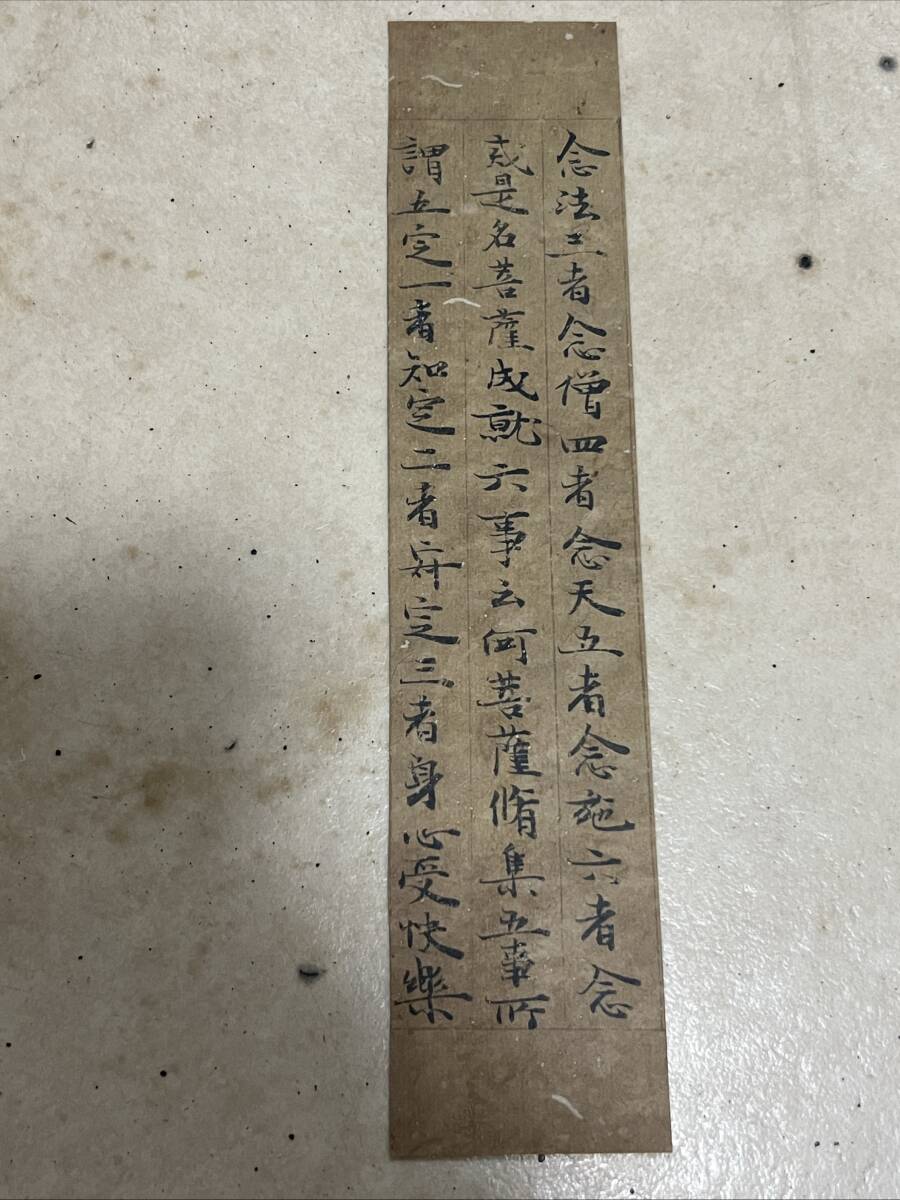 念法三者念僧四者念天五者念施六者念
戒是名菩薩成就六事云何菩薩脩集五事所
謂五定一者知定二者寂定三者身心受快樂